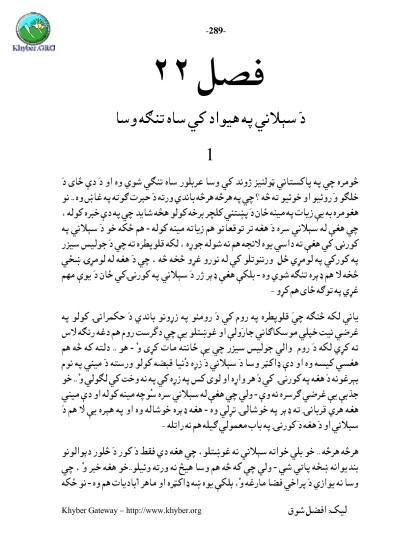 -289-
Khyber.ORG
فصل ۲۲
دَ سېلاني په هېواد کي ساه تنګه وسا
1
څومره چي په پاکستاني ټولنيز ژوند کي وسا عربلور ساه تنګي شوې وه او دَ دې ځای دَ
خلګو وَ رويو او خويو ته څه؟ چي په هرڅه هرڅه باندي ورته دَ حيرت ګوته په غاښ وه .. نو
هغومره به يې زيات په مينه ځان دَ پښتني کلچر برخه کولو هڅه شايد چي په دې خبره کوله ،
چي هغې له سېلاني سره دَ هغه تر توقعاتو هم زياته مينه کوله - هم څکه خو دَ سېلاني په
کورنۍ کي هغې ته داسي يوه لانجه هم نه شوه جوړه ، لکه قلوپطره ته چي دَ جوليس سيزر
په کور کي په لومړي ځل ورننوتلو کي له نورو غړو څخه څه .. چي دَ هغه له لومړۍ ښځي
څخه لا هم ډېره تنګه شوې وه - بلکي هغې ډېر ژر دَ سېلاني په کورنۍ کي ځان دَ يوې مهم
غړي په توګه ځای هم کړو -
يانې لکه څنګه چي قلوپطره په روم کي دَ رومنو په زړونو باندي دَ حکمرانۍ کولو په
غرضي نيت خپلي موسکاګاني جاروَلې او غوښتلو يې چي دګرست روم هم دغه رنګه لاس
ته کړي لکه دَ روم والي جوليس سيزر چي يې ځانته مات کړی وُ - هو .. دلته که څه هم
هغسي کيسه وه او دې ډاکټر وسا دَ سېلاني دَ زړه دُنيا قبضه کولو ورسته دَ ميني په نوم
بېرغونه دَ هغه په کورنۍ کي دَ هر واړه او لوی کس په زړه کي په نه وخت کي لګولي وُ.. خو
جذبې يې غرضي ګرسره نه وې- ولي چي هغې له سېلاني سره سُوچه مينه کوله او دې ميني
هغې هري قربانۍ ته ډېر په خوشالۍ تړلې وه - هغه ډېره خوشاله وه او په هېره يې لا هم دَ
سېلاني او دَ هغه دَ کورنۍ په باب معمولي ګيله هم نه راتله -
هرڅه هرڅه .. خو بلي خوا ته سېلاني نه غوښتلو ، چي هغه دې فقط دَ کور دَ څلور ديوالونو
بندېوانه ښځه پاتې شي - ولي چي که څه هم وسا هيڅ نه ورته وئيلو..خو هغه خبر وُ ، چي
وسا نه يوازي دَ پراخي فضا مارغه وُ، بلکي يوه ښه ډاکټره او ماهر اباديات هم وه - نو څکه
Khyber Gateway – http://www.khyber.org
ليک: افضل شوق